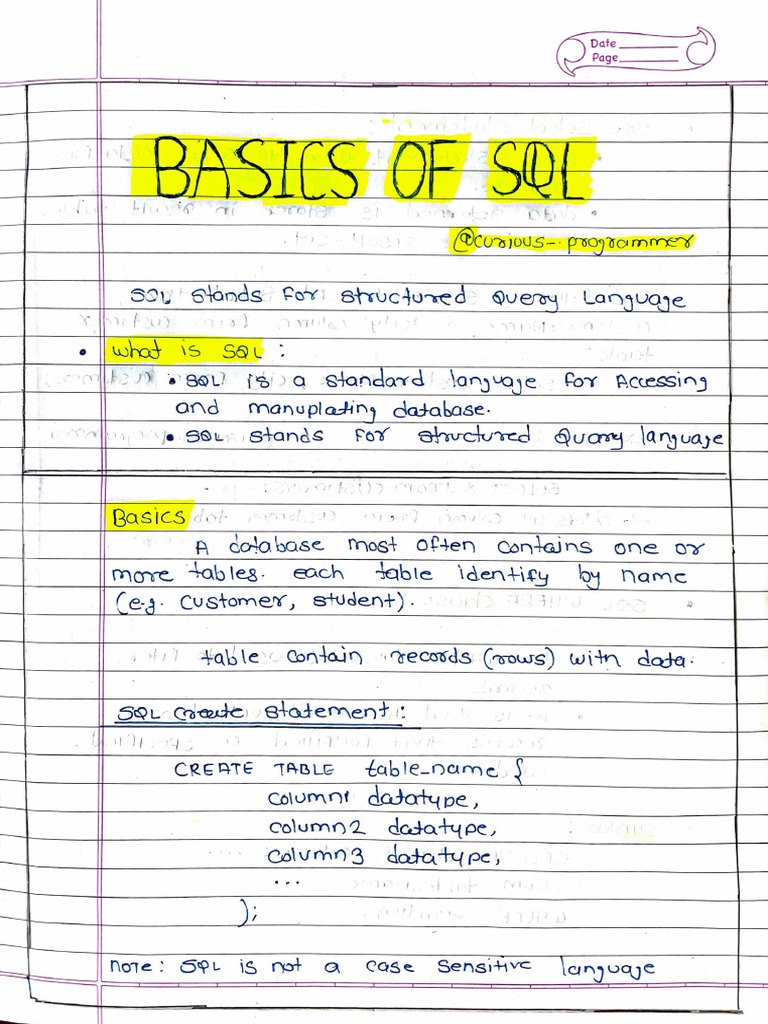 Date
Page
BASICS OF SQL
@curious-.programmer
SQL stands for structured Query Language
• What is SQL :
• SQL is a standard language for Accessing
and manuplating database.
• SQL stands for structured Query language
Basics
A database most often contains one or
more tables. each table identify by name
(e.g. customer, student).
table contain records (rows) with data.
SQL create statement :
CREATE TABLE table_name {
column1 datatype,
column2 datatype,
column3 datatype,
...
);
note: SQL is not a case sensitive language